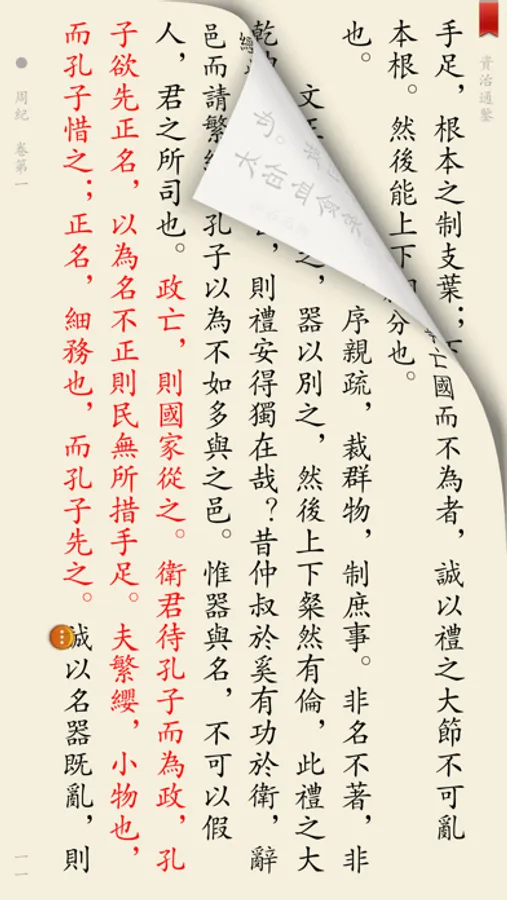 資治通鑒
手足，根本之制支葉；下亡國而不為者，誠以禮之大節不可亂
本根。然後能上下分也。
也。序親疏，裁群物，制庶事。非名不著，非
文之，器以別之，然後上下粲然有倫，此禮之大
乾，則禮安得獨在哉？昔仲叔於奚有功於衛，辭
邑而請繁孔子以為不如多與之邑。惟器與名，不可以假
人，君之所司也。政亡，則國家從之。衛君待孔子而為政，孔
子欲先正名，以為名不正則民無所措手足。夫繁纓，小物也，
而孔子惜之；正名，細務也，而孔子先之。誠以名器既亂，則
周紀 卷第一
一一